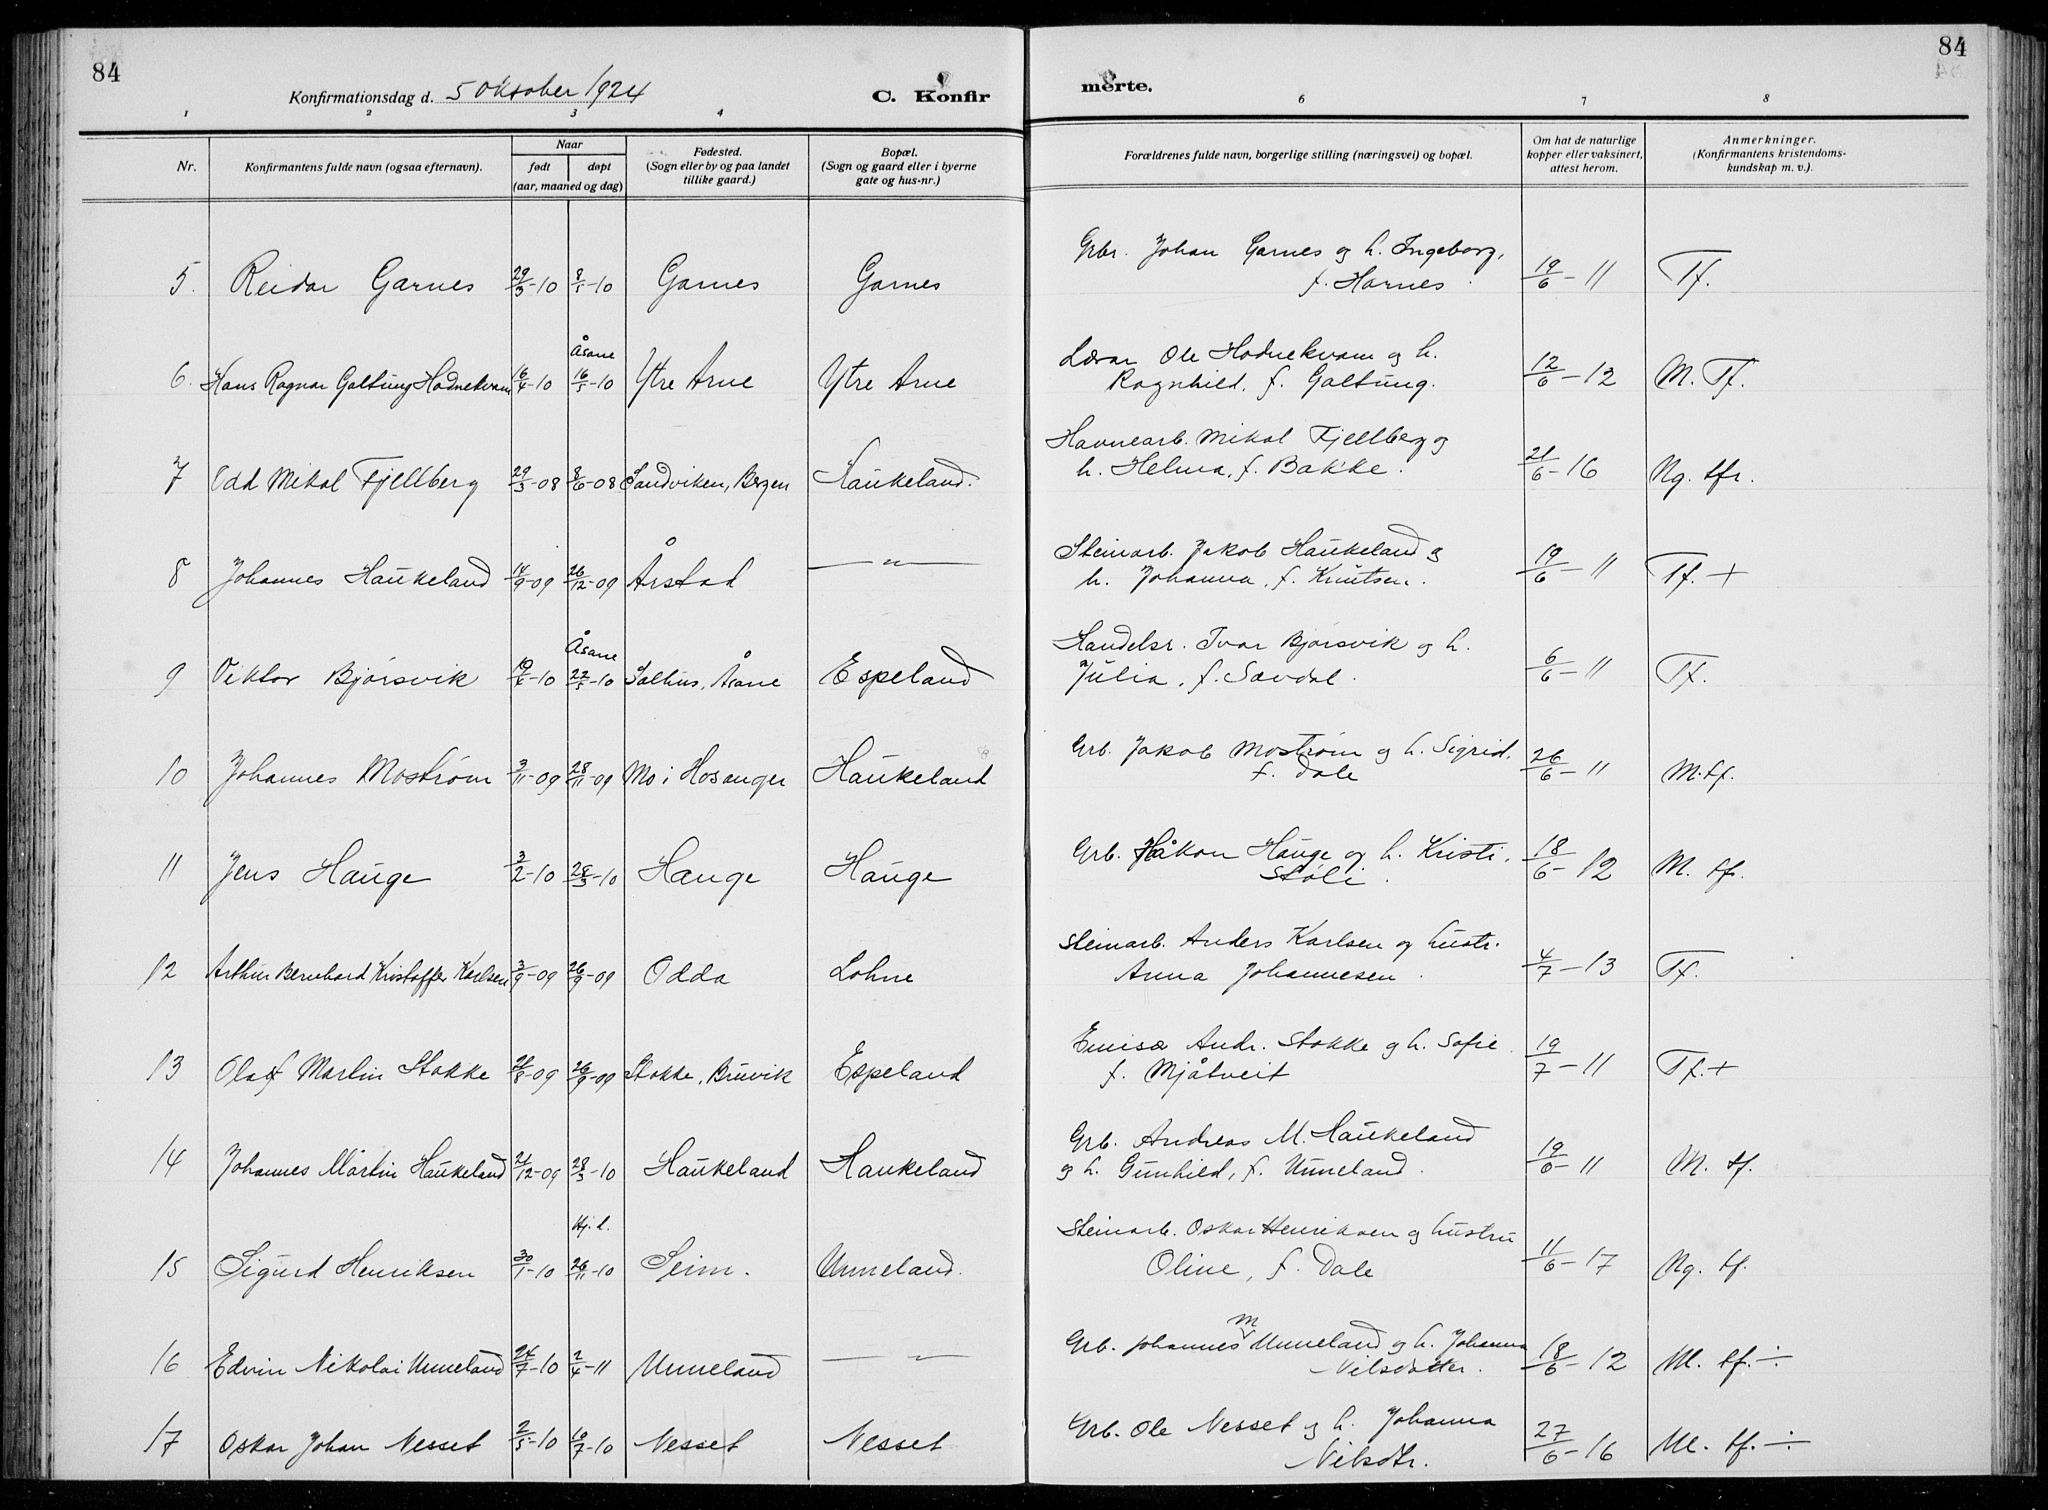 84
84
Konfirmationsdag d. 5 Oktober 1924
C. Konfir merte.
1 2 3 4 6 7 8
Nr. Konfirmantens fulde navn (ogsaa efternavn). Naar født døpt (aar, maaned og dag) Fødested. (Sogn eller by og paa landet tillike gaard.) Bopæl. (Sogn og gaard eller i byerne gate og hus-nr.) Forældrenes fulde navn, borgerlige stilling (næringsvei) og bopæl. Om hat de naturlige kopper eller vaksinert, attest herom. Anmerkninger. (Konfirmantens kristendoms-kundskap m. v.).
5. Reidar Garnes 29/3-10 8/5-10 Garnes Garnes Grbr. Johan Garnes og h. Ingeborg, f. Harnes. 19/6-11 Tf.
6. Hans Ragnar Galtung Hodnekvam 16/4-10 Åsane 16/5-10 Ytre Arne Ytre Arne Lærar Ole Hodnekvam og h. Ragnhild, f. Galtung. 12/6-12 M. Tf.
7 Odd Mikal Fjellberg 29/3-08 8/6-08 Sandviken, Bergen Haukeland. Havnearb. Mikal Fjellberg og h. Helma, f. Bakke. 21/6-16 Ng. tfr.
8 Johannes Haukeland 14/9-09 26/12-09 Årstad —"— Steinarb. Jakob Haukeland og h. Johanna, f. Knutsen. 19/6-11 Tf. +
9 Viktor Bjørsvik 10-10 Åsane 22/5-10 Salhus, Åsane Espeland Handelsr. Ivar Bjørsvik og h. Julia, f. Sævdal. 6/6-11 Tf.
10 Johannes Mostrøm 3/11-09 28/11-09 Mo i Hosanger Haukeland Grb. Jakob Mostrøm og h. Sigrid, f. Dale 26/6-11 M. tf.
11 Jens Hauge 3/2-10 28/3-10 Hauge Hauge Grb. Håkon Hauge og h. Kristi, Støli. 18/6-12 M. tf.
12 Arthur Bernhard Kristoffer Karlsen 3/9-09 26/9-09 Odda Lohne Steinarb. Anders Karlsen og hustr. Anna Johannesen. 4/7-13 Tf.
13 Olaf Martin Stokke 26/8-09 26/9-09 Stokke, Bruvik Espeland Andr. Stokke og h. Sofie f. Mjåtveit 19/7-11 Tf. +
14 Johannes Martin Haukeland 21/12-09 28/3-10 Haukeland Haukeland Grb. Andreas M. Haukeland og h. Gunhild, f. Unneland. 19/6-11 M. tf.
15 Sigurd Henriksen 30/1-10 Hj. d. 26/11-10 Seim. Unneland. Steinarb. Oskar Henriksen og hustru Oline, f. Dale 11/6-17 Ng. tf.
16 Edvin Nikolai Unneland 24/7-10 2/4-11 Unneland —"— Grb. Johannes M Unneland og h. Johanna Nilsdatter. 18/6-12 M. tf. ÷
17 Oskar Johan Nesset 2/5-10 10/7-10 Nesset Nesset Grb. Ole Nesset og h. Johanna Nilsdtr. 27/6-16 M. tf. ÷